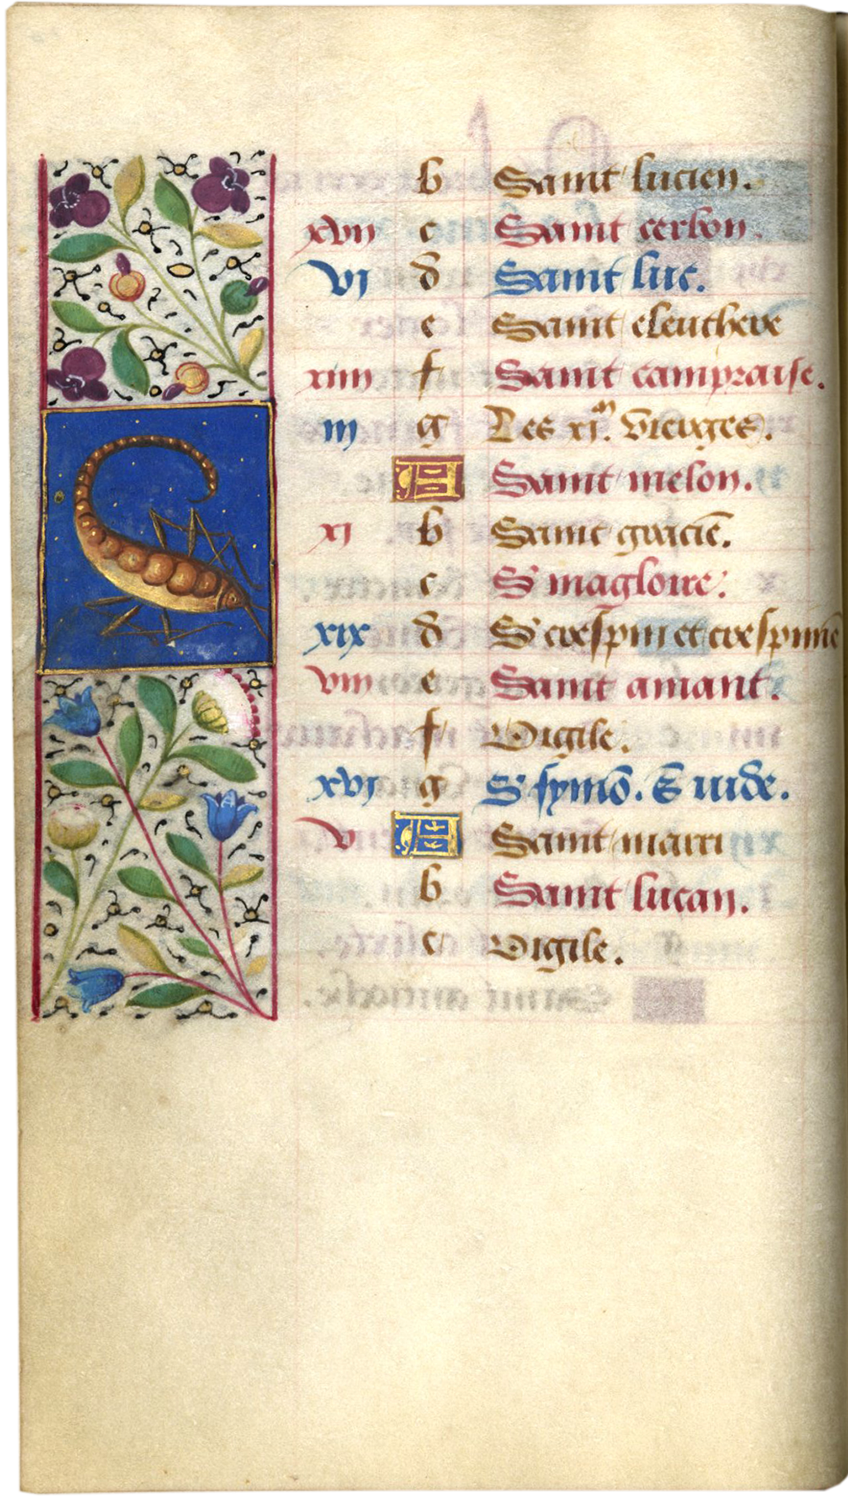 b Saint lucien.
xvii c Saint cerbon.
vi d Saint luc.
e Saint eleuthere
xiiii f Saint campraise.
iii g Les xi.m vierges.
A Saint melon.
xi b Saint gracie.
c S magloire.
xix d S crespin et crespinie
viii e Saint amant.
f Vigile.
xvi g S symo. S iude.
v A Saint
b Saint lucan.
c Vigile.